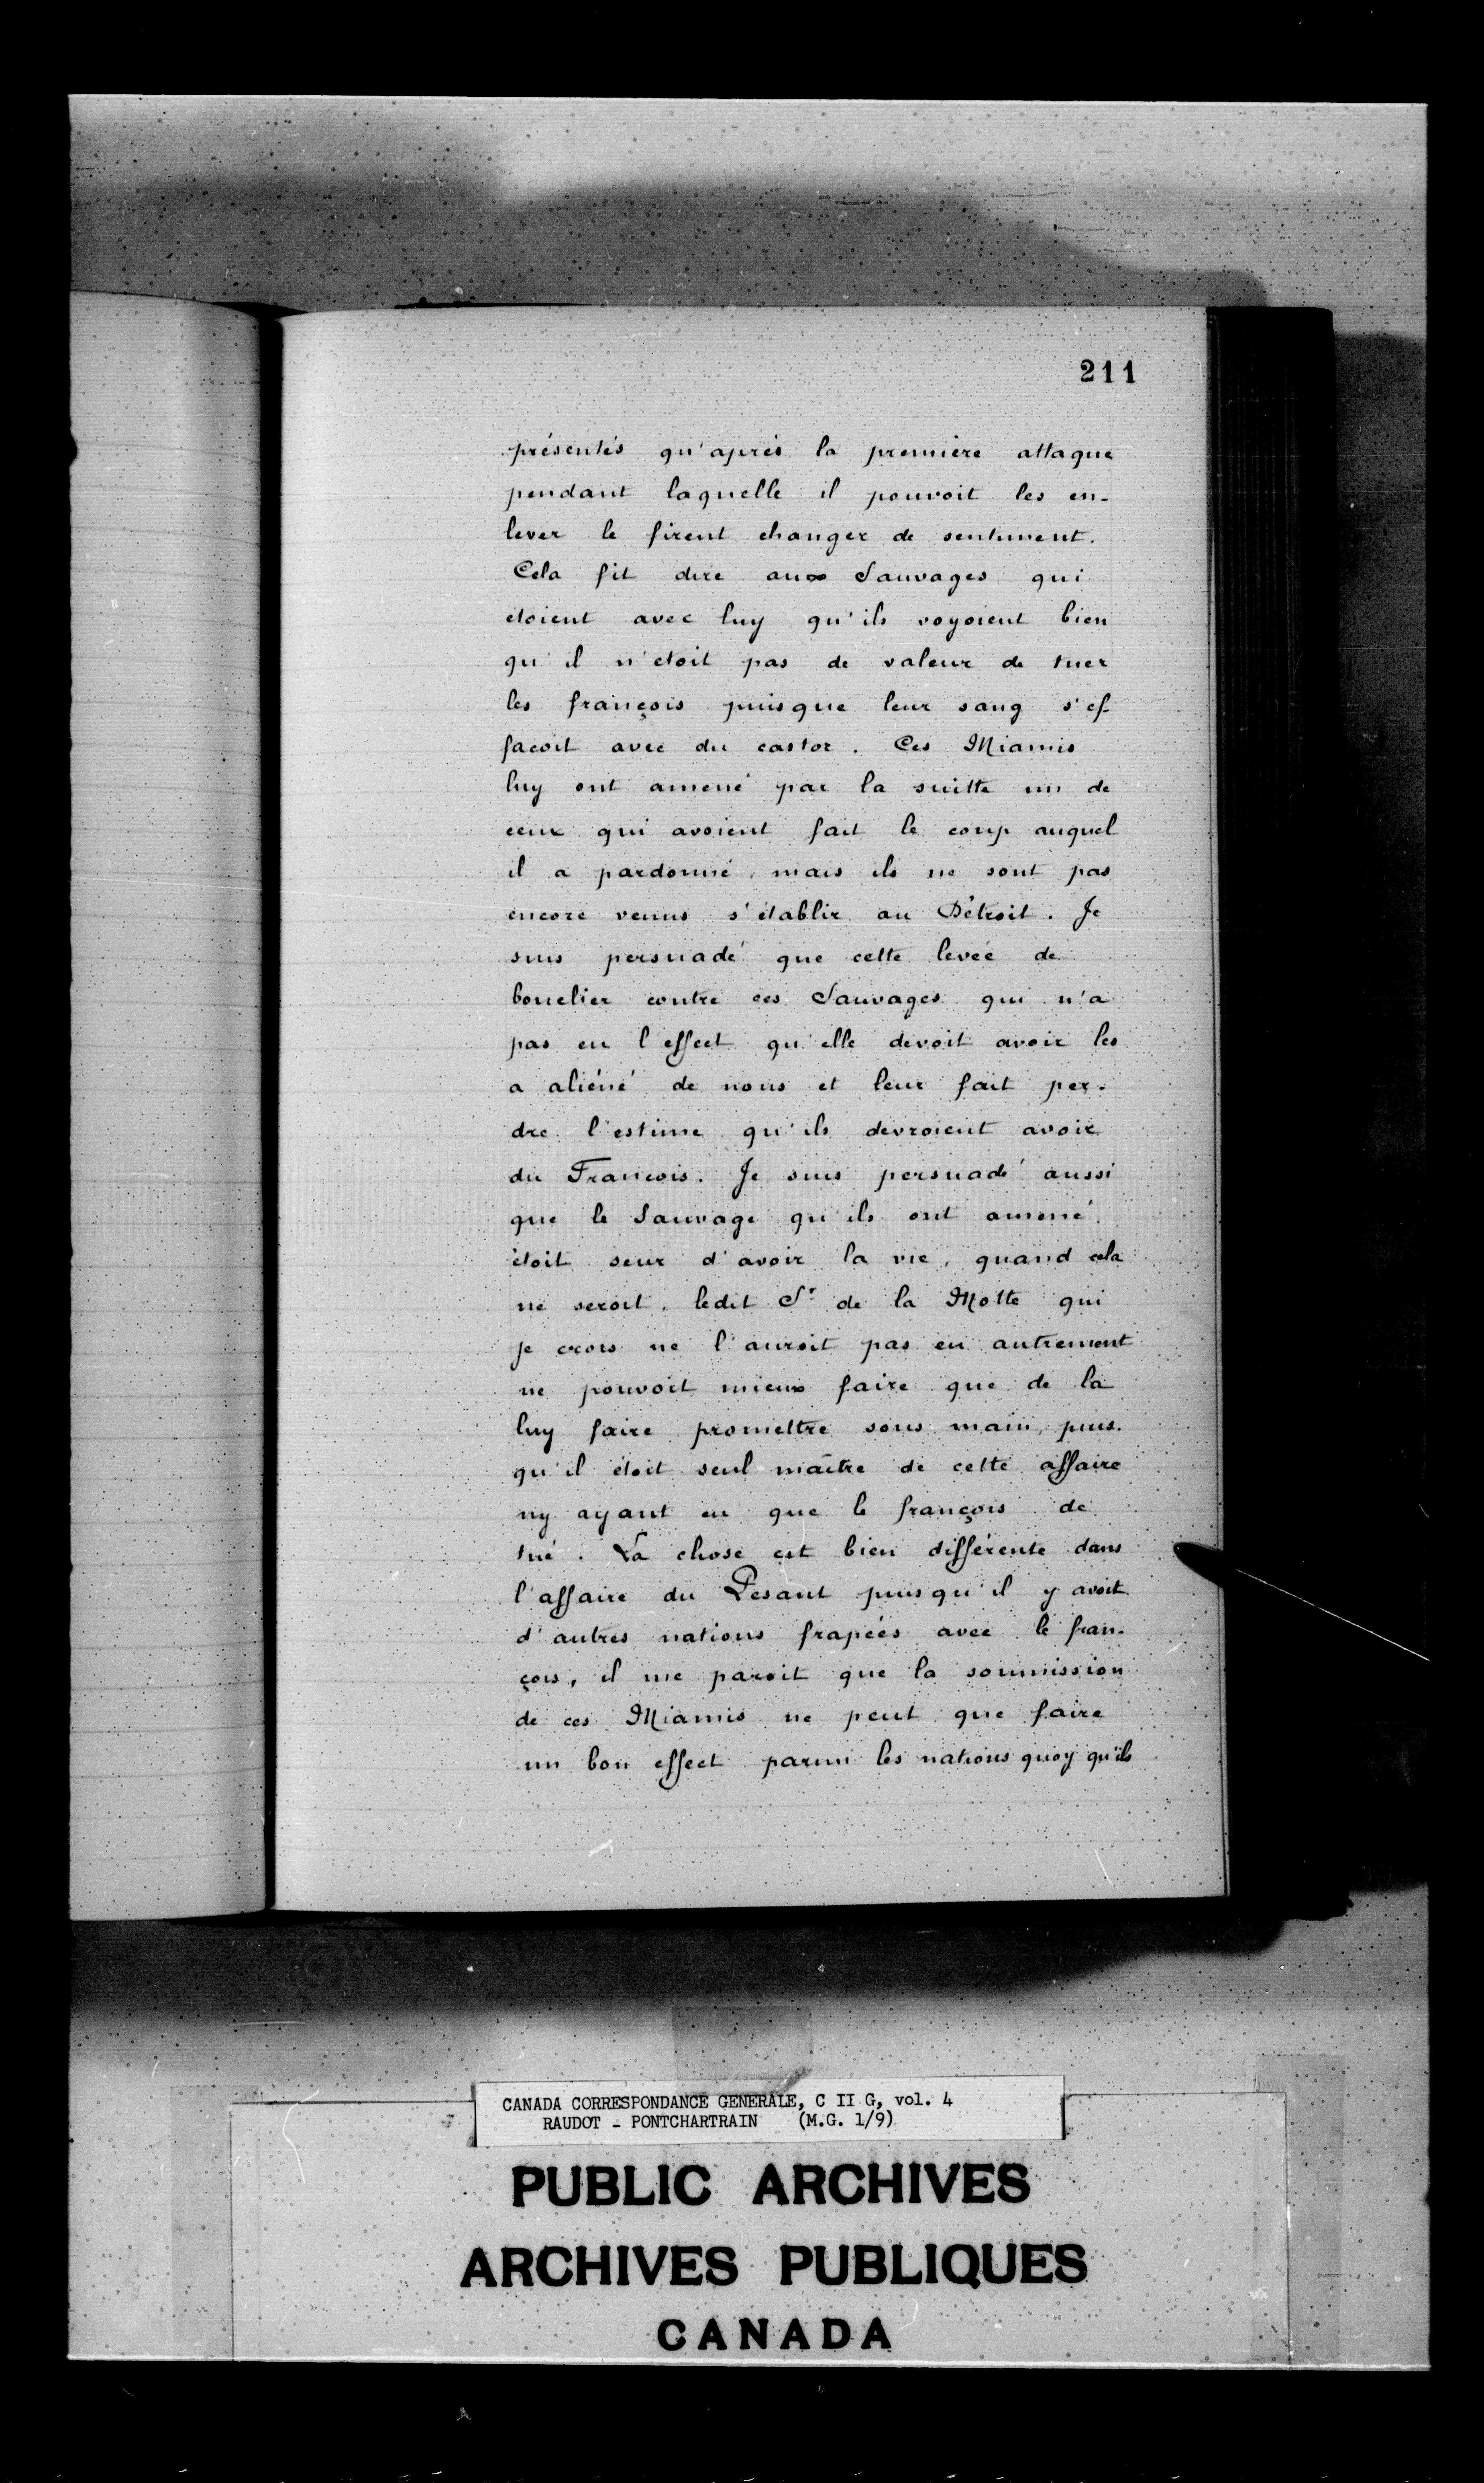 211
présentés qu'après la première attaque
pendant laquelle il pouvoit les en-
lever le firent changer de sentiment.
Cela fit dire aux Sauvages qui
etoient avec luy qu'ils voyoient bien
qu'il n'etoit pas de valeur de tuer
les françois puisque leur sang s'ef-
facoit avec du castor. Ces Miamis
luy ont amené par la suitte un de
ceux qui avoient fait le coup auquel
il a pardonné, mais ils ne sont pas
encore venus s'établir au Détroit. Je
suis persuadé que cette levée de
bouclier contre ces Sauvages qui n'a
pas eu l'effect qu'elle devoit avoir les
a aliéné de nous et leur fait per-
dre l'estime qu'ils devroient avoir
du Francois. Je suis persuadé aussi
que le Sauvage qu'ils ont amené
étoit seur d'avoir la vie, quand cela
ne seroit, ledit Sr de la Motte qui
je crois ne l'auroit pas eu autrement
ne pouvoit mieux faire que de la
luy faire promettre sous main, puis-
qu'il étoit seul maître de cette affaire
ny ayant eu que le françois de
tué. La chose est bien différente dans
l'affaire du Pesant puisqu'il y avoit
d'autres nations frapées avec le fran-
çois, il me paroit que la soumission
de ces Miamis ne peut que faire
un bon effect parmi les nations quoy qu'ils
CANADA CORRESPONDANCE GENERALE, C II G, vol. 4
RAUDOT - PONTCHARTRAIN (M.G. 1/9)
PUBLIC ARCHIVES
ARCHIVES PUBLIQUES
CANADA